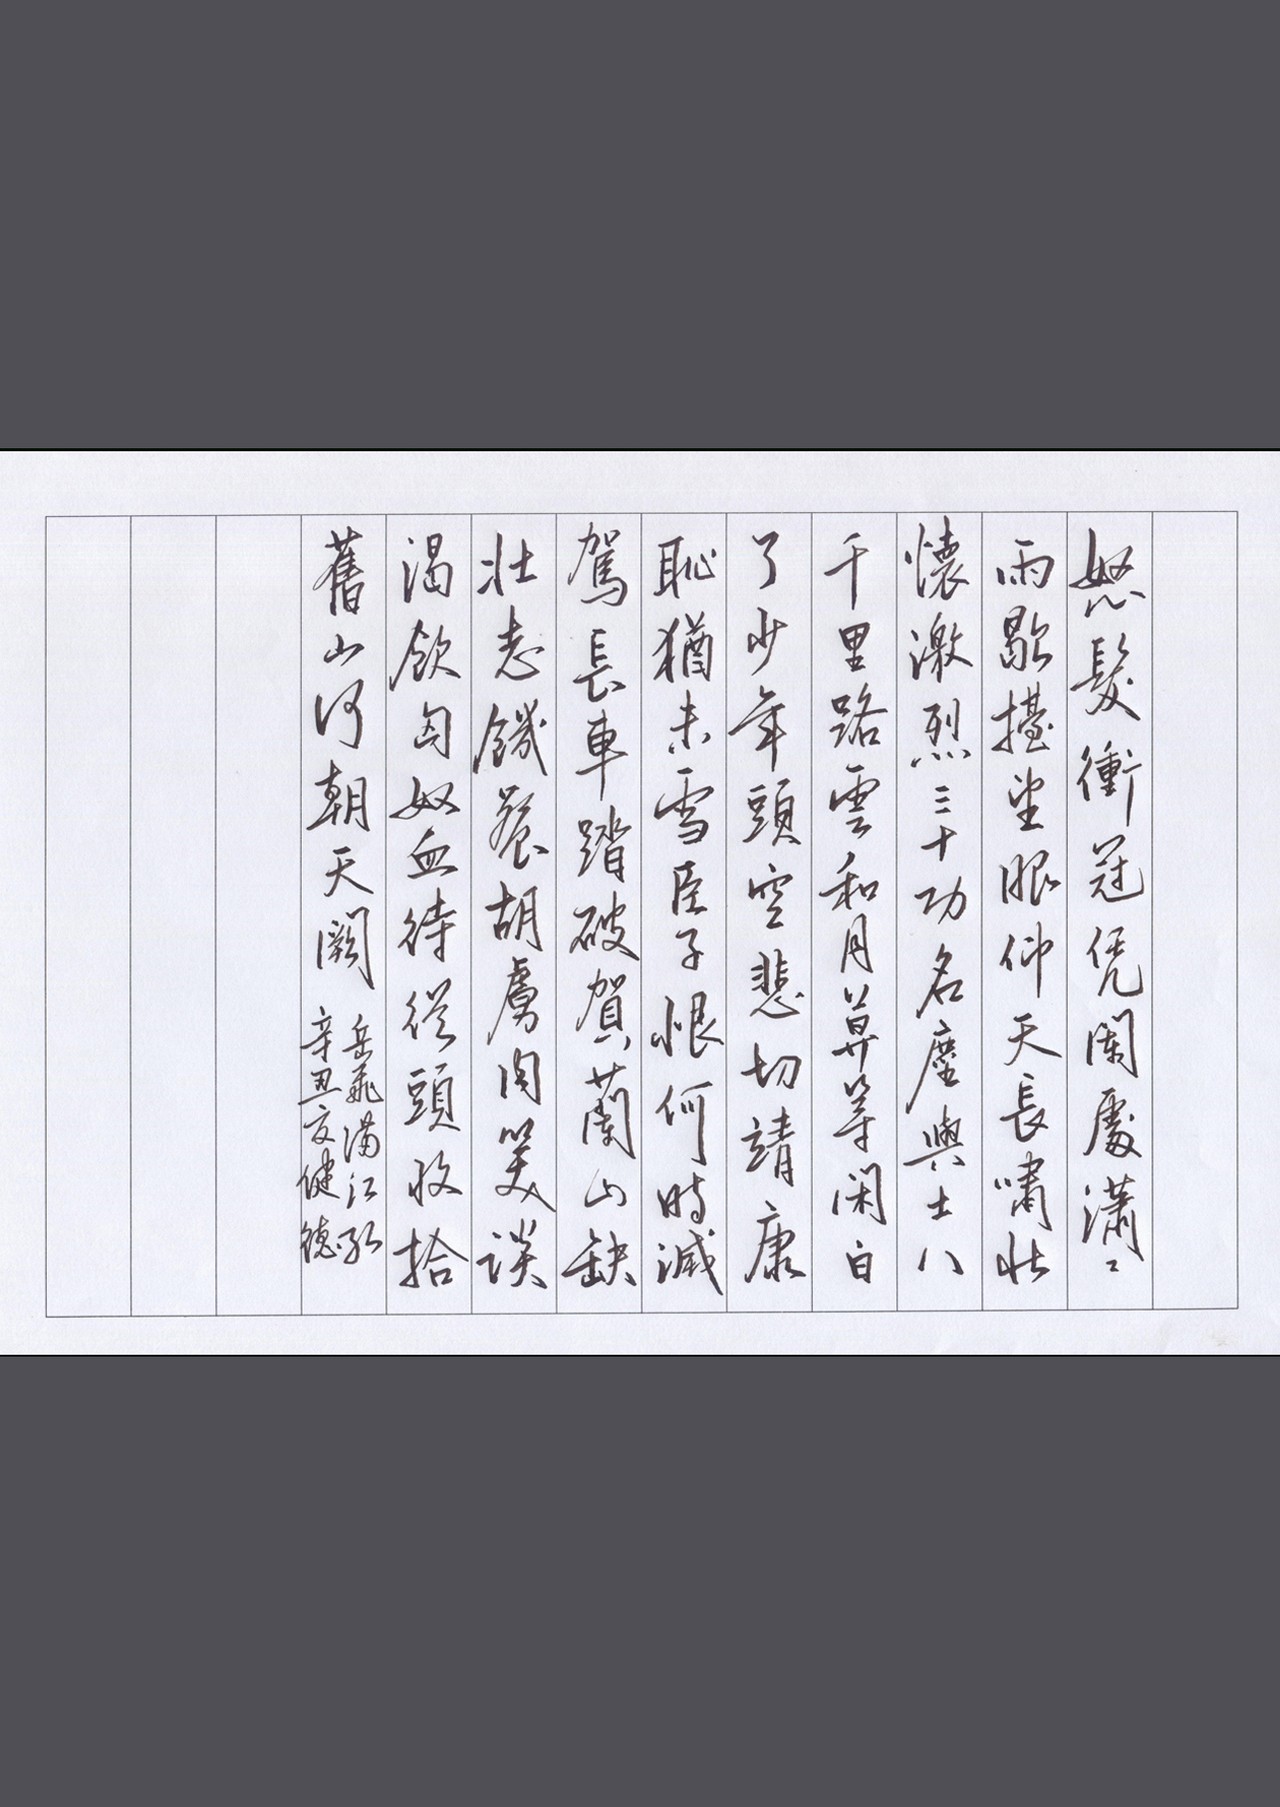 怒髮衝冠凭闌處瀟〻
雨歇擡望眼仰天長嘯壯
懷激烈三十功名塵與土八
千里路雲和月莫等閑白
了少年頭空悲切靖康
恥猶未雪臣子恨何時滅
駕長車踏破賀蘭山缺
壯志饑餐胡虜肉笑談
渴飲匈奴血待從頭收拾
舊山河朝天闕
岳飛滿江紅
辛丑夏健德